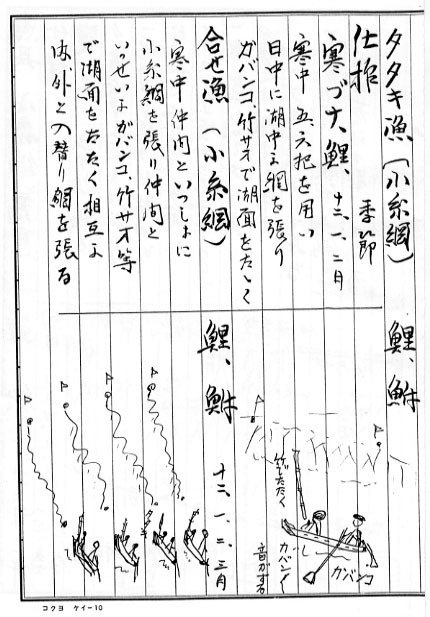 タタキ漁(小糸網) 鯉、鮒
仕掛 季節
寒ブナ、鯉、十二、一、二月
寒中 五、六把を用い
日中に湖中に網を張り
ガバンコ、竹サオで湖面をたゝく
竹でたたく
ガバンコ
ガバンコ
音がする
合せ漁(小糸網) 鯉、鮒
十二、一、二、三月
寒中仲間といつしよに
小糸網を張り仲間と
いっせいにガバンコ、竹サオ等
で湖面をたたく相互に
内、外と入替り網を張る
コクヨ ケイ-10